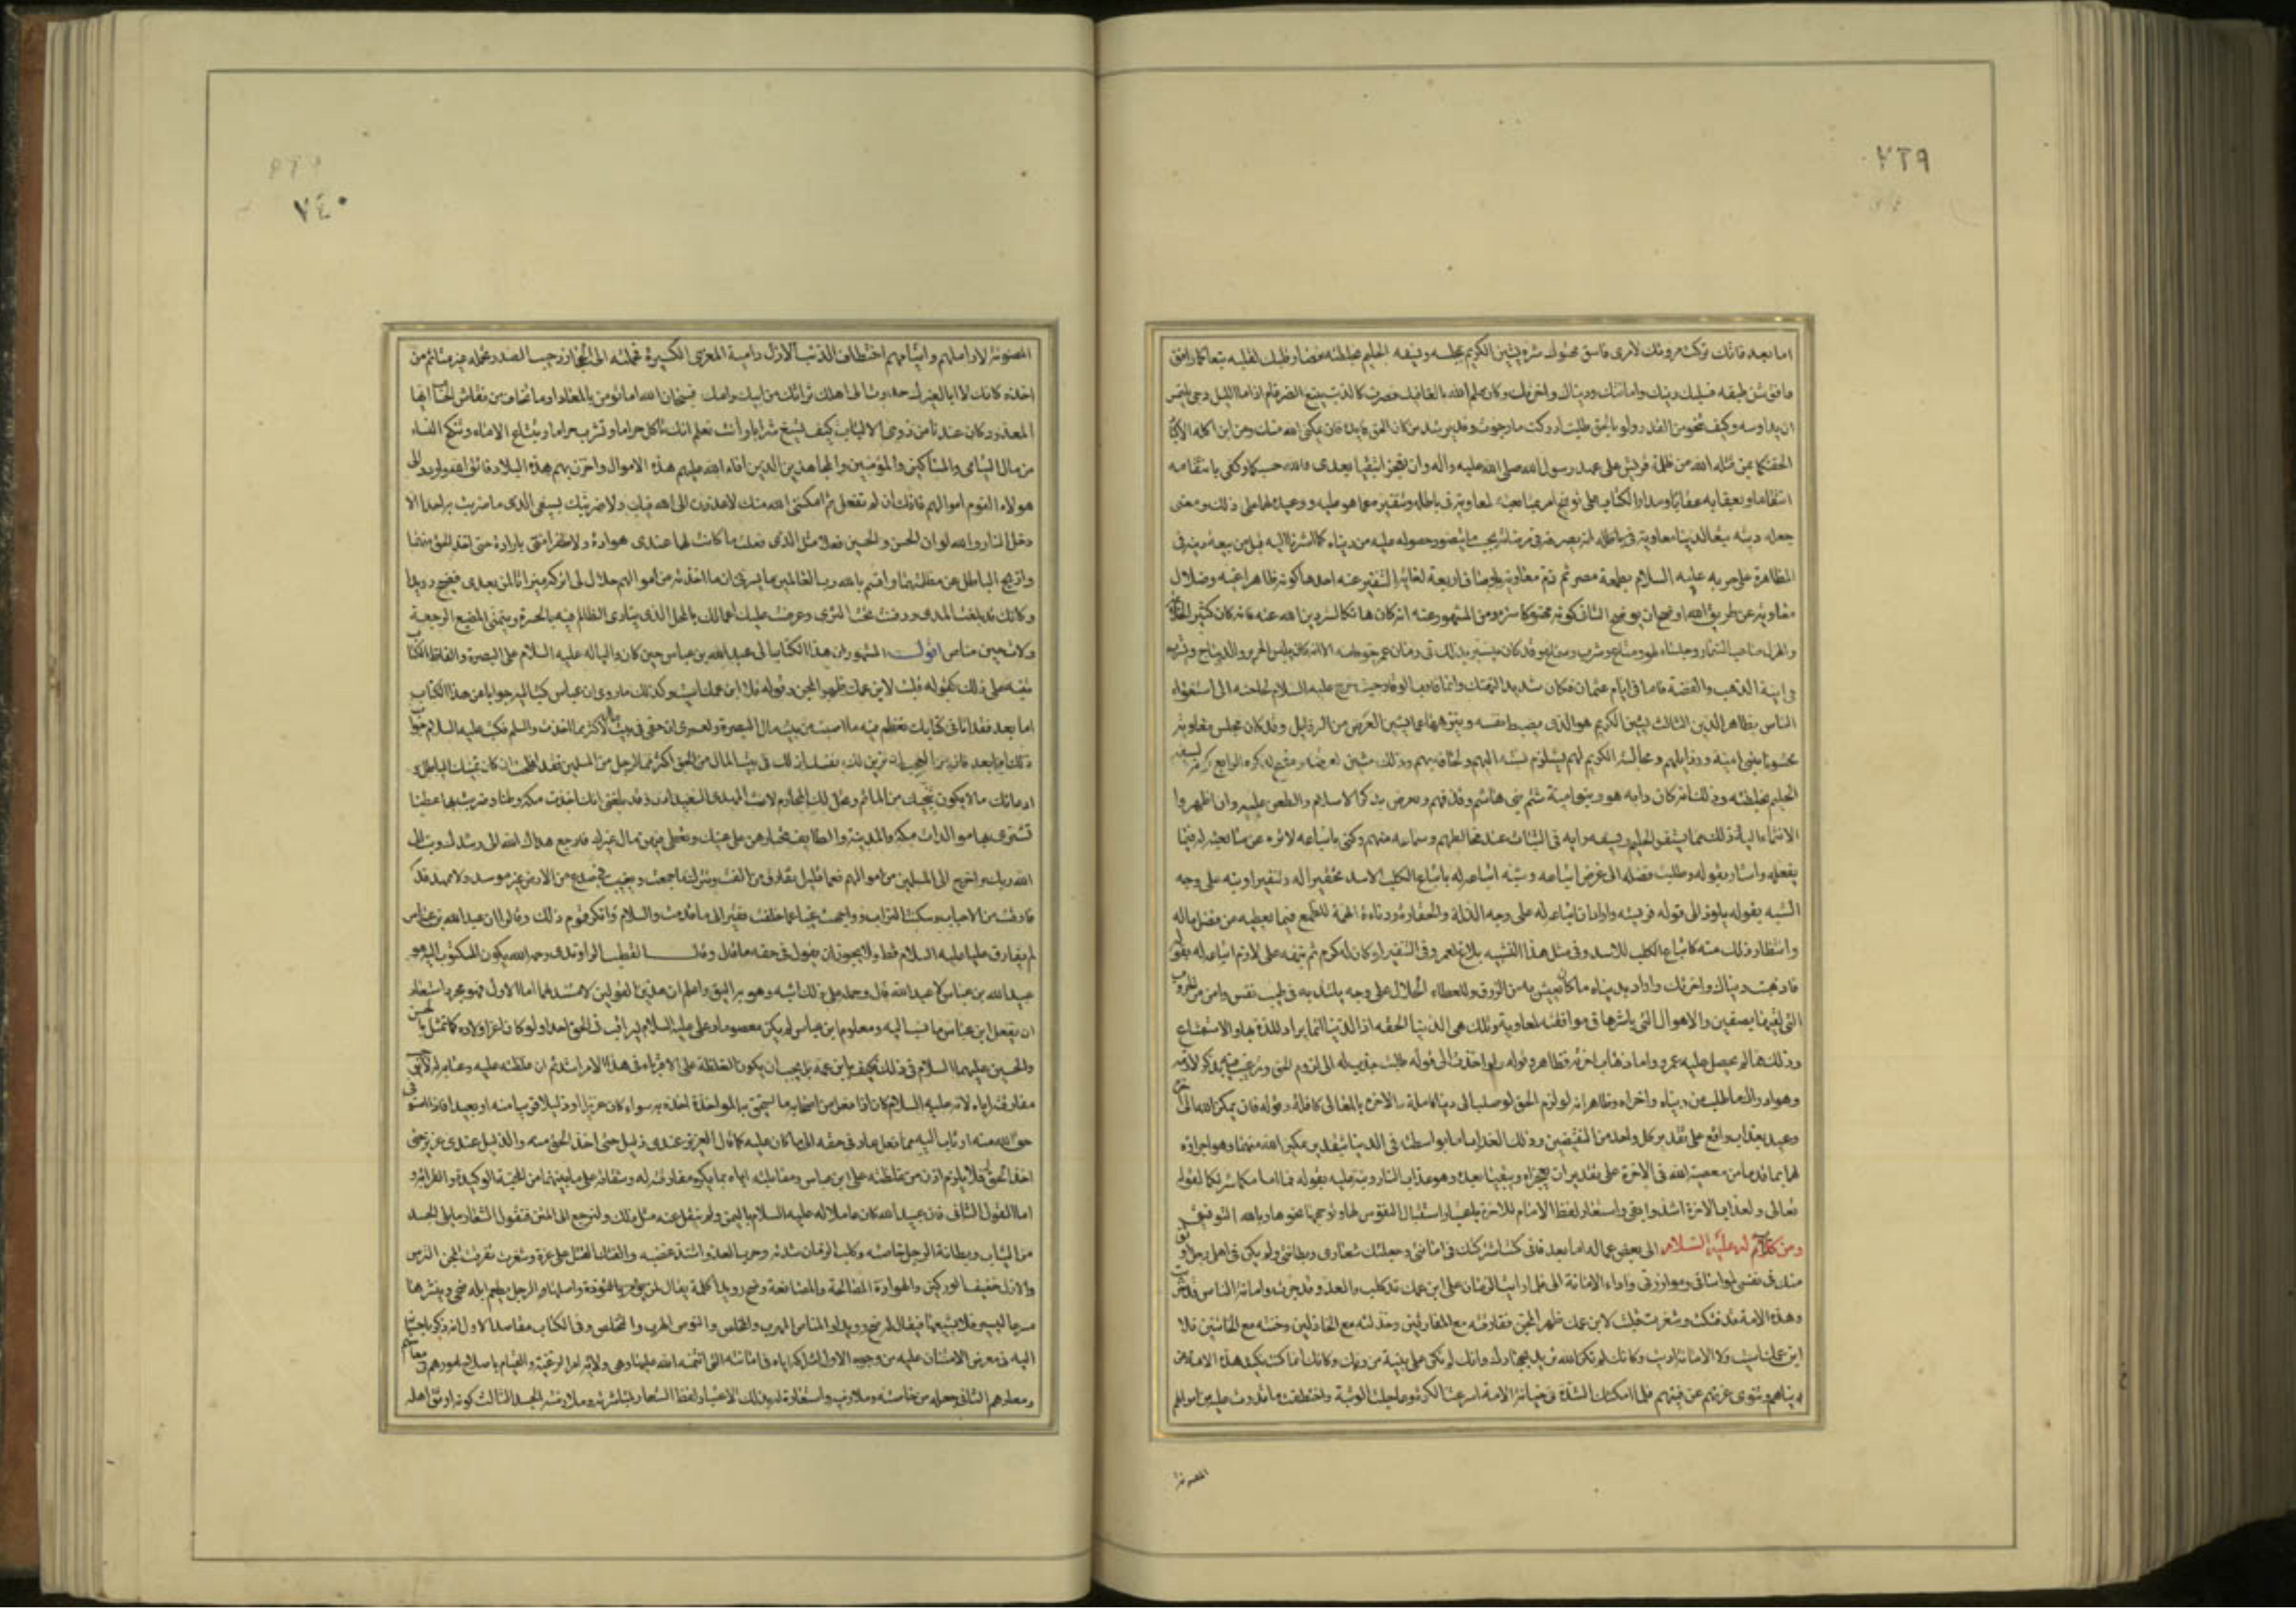 ٧٣٩
اما بعد فانك تركت مروتك لامرئ فاسق مهتوك ستره يشين الكريم بمجلسه ويسفه الحليم بخلطته فصار قلبك لقلبه تبعا كما وافق
شن طبقه فسلبك دينك وامانتك ودنياك واخرتك وكان علم الله بالغا فيك فصرت كالذئب يتبع الضرغام اذا ما الليل دجى
وكيف تنجو من القدر ولو بالحق طلبت ادركت ما رجوت وقد يرشد من كان الحق فان يمكن الله منك ومن ابن اكلة الاكباد
الحقتكما بمن قتله الله من ظلمة قريش على عهد رسول الله صلى الله عليه واله وان تعجزا وتبقيا بعدى فالله حسبكما وكفى بانتقامه
انتقاما وبعقابه عقابا ومدار الكتاب على توبيخ امر متابعته لمعاوية فى باطله وتنفيره عما هو عليه ووعيدهما على ذلك ومعنى
جعله دينه تبعا لدنيا معاوية
المظاهرة على حربه عليه السلام بطعمة مصر ثم ذم معاوية باوصاف اربعة لغاية التنفير عنه احدها كونه ظاهر اغيه وضلال
معاوية عن طريق الله اوضح ان يوضح الثانى كونه مهتوكا ستره ومن المشهور عنه انه كان هاتكا لستر دين الله عنه فانه كان كثير
وشرب
فى انية الذهب والفضة فاما فى ايام عثمان فكان شديد التهتك وانما قارب الوقار حيث خرج عليه السلام لحاجته الى استغواء
الناس بظاهر الدين الثالث يشين الكريم هو الذى يضبط نفسه وينزهها عما يشين العرض من الرذايل وقد كان مجلس معاوية
مشحونا ببنى امية ورذايلهم ومجالسة الكريم لهم يستلزم نسبته اليهم ولحاقه بهم وذلك مشين لعرضه ومقبح لذكره الرابع كونه يسفه
الحليم بخلطته وذلك انه كان دابه هو وبنو امية شتم بنى هاشم وقذفهم والتعرض بذكر الاسلام والطعن عليه وان اظهروا
الانتماء اليه وذلك مما يستفز الحليم ويسفه رايه فى الثبات عند مخالطتهم وسماعه منهم وكنى باتباعه لاثره عن متابعته له فيما
يفعله واشار بقوله وطلبت فضله الى غرض اتباعه وشبه اتباعه له باتباع الكلب الاسد تحقيرا له وتنفيرا ونبه على وجه
الشبه بقوله يلوذ الى قوله فريسته واراد ان اتباعه له على وجه الذلة والحقارة ودناءة الهمة للطمع فيما يعطيه من فضل ماله
وانتظار ذلك منه كاتباع الكلب للاسد وفى مثل هذا التشبيه بلاغ لعمرو فى التنفير لو كان له كرم ثم نبه على لازم اتباعه له بقوله
فاذهبت دنياك واخرتك واراد بدنياه ما كان يعيش به من الرزق والعطاء الحلال على وجه يلتذ به فى طيب نفس وامن من
التى لقيها بصفين والاهوال التى باشرها فى موافقته لمعاوية وتلك هى الدنيا الحقة اذ الدنيا انما يراد للذة بها والاستمتاع
وذلك مما لم يحصل عليه عمرو واما ذهاب اخرته فظاهر وقوله ولو اخذت الى قوله طلبت جذب له الى لزوم الحق
وهو ادراك ما طلب من دنياه واخراه وظاهر انه لو لزم الحق لوصل الى دنيا كاملة
وعيد بعذاب واقع على تقدير كل واحد من النقيضين وذلك العذاب اما بواسطته فى الدنيا بتقدير يمكين الله منهما وهو جزاؤه
لهما بما قدما من معصية الله فى الاخرة على تقدير ان يعجزاه ويبقيا بعده وهو عذاب النار ونبه عليه بقوله فما امامكما شر لكما لقوله
تعالى ولعذاب الاخرة اشد وابقى واستعار لفظ الامام للاخرة باعتبار استقبال النفوس لها وتوجهها نحوها وبالله التوفيق
ومن كلام له عليه السلام الى بعض عماله اما بعد فانى كنت اشركتك فى امانتى وجعلتك شعارى وبطانتى ولم يكن فى اهلى رجل اوثق
منك فى نفسى لمواساتى وموازرتى واداء الامانة الى فلما رايت الزمان على ابن عمك قد كلب والعدو قد حرب وامانة الناس قد خزيت
وهذه الامة قد فتكت وشغرت قلبت لابن عمك ظهر المجن ففارقته مع المفارقين وخذلته مع الخاذلين وخنته مع الخائنين فلا
ابن عمك اسيت ولا الامانة اديت وكانك لم تكن الله تريد بجهادك وكانك لم تكن على بينة من ربك وكانك انما كنت تكيد هذه الامة عن
دنياهم وتنوى غرتهم عن فيئهم فلما امكنتك الشدة فى خيانة الامة اسرعت الكرة وعاجلت الوثبة واختطفت ما قدرت عليه من اموالهم
المصونة
٧٤٠
المصونة لاراملهم وايتامهم اختطاف الذئب الازل دامية المعزى الكسيرة فحملته الى الحجاز رحيب الصدر بحمله غير متاثم من
اخذه كانك لا ابا لغيرك حدرت الى اهلك تراثك من ابيك وامك فسبحان الله اما تؤمن بالمعاد اوما تخاف من نقاش الحساب ايها
المعدود كان عندنا من ذوى الالباب كيف تسيغ شرابا وانت تعلم انك تاكل حراما وتشرب حراما وتبتاع الاماء وتنكح النساء
من مال اليتامى والمساكين والمؤمنين والمجاهدين الذين افاء الله عليهم هذه الاموال واحرز بهم هذه البلاد فاتق الله واردد الى
هولاء القوم اموالهم فانك ان لم تفعل ثم امكننى الله منك لاعذرن الى الله فيك ولاضربنك بسيفى الذى ما ضربت به احدا الا
دخل النار والله لو ان الحسن والحسين فعلا مثل الذى فعلت ما كانت لهما عندى هوادة ولا ظفرا منى بارادة حتى اخذ الحق منهما
وازيح الباطل عن مظلمتهما واقسم بالله رب العالمين ما يسرنى ان ما اخذته من اموالهم حلال لى اتركه ميراثا لمن بعدى فضح رويدا
وكانك قد بلغت المدى ودفنت تحت الثرى وعرضت عليك اعمالك بالمحل الذى ينادى الظالم فيه بالحسرة ويتمنى المضيع الرجعة
ولات حين مناص اقول المشهور ان هذا الكتاب الى عبدالله بن عباس حين كان واليا له عليه السلام على البصرة والفاظ الكتاب
تنبه على ذلك كقوله قلبت لابن عمك ظهر المجن وقوله فلا ابن عمك اسيت وكذلك ما روى ان ابن عباس كتب اليه جوابا من هذا الكتاب
اما بعد فقد اتانى كتابك تعظم فيه ما اصبت من بيت مال البصرة ولعمرى ان حقى فى بيت المال لاكثر مما اخذت والسلام فكتب عليه السلام جواب
ذلك اما بعد فان من العجب ان تزين لك نفسك ان لك فى بيت المال من الحق اكثر مما لرجل من المسلمين فقد افلحت ان كان تمنيك الباطل و
ادعائك ما لا يكون ينجيك من الماثم ويحل لك المحارم لانت المهدى السعيد اذن وقد بلغنى انك اتخذت مكة وطنا وضربت بها عطنا
تشترى بها مولدات مكة والمدينة والطايف تختارهن على عينك وتعطى فيهن مال غيرك فارجع هداك الله الى رشدك وتب الى
الله ربك واخرج الى المسلمين من اموالهم فعما قليل تفارق من الفت وتترك ما جمعت وتغيب فى صدع من الارض غير موسد ولا ممهد قد
فارقت الاحباب وسكنت التراب وواجهت الحساب غنيا عما خلفت فقيرا الى ما قدمت والسلام وانكر قوم ذلك وقالوا ان عبدالله بن عباس
لم يفارق عليا عليه السلام قط ولا يجوز ان يقول فى حقه ما قال وقال القطب الراوندى رحمه الله يكون المكتوب اليه هو
عبيدالله بن عباس لا عبدالله قال وحمله على ذلك اشبه وهو به اليق واعلم ان هذين القولين لا مستند لهما اما الاول فهو مجرد استبعاد
ان يفعل ابن عباس ما نسب اليه ومعلوم ان ابن عباس لم يكن معصوما وعلى عليه السلام لم يراقب فى الحق احدا ولو كان اعز اولاده كما تمثل بالحسن
والحسين عليهما السلام فى ذلك فكيف بابن عمه بل يجب ان يكون الغلظة على الاقرباء فى هذا الامر اشد ثم ان غلظته عليه وعتابه له لا
مفارقته اياه لانه عليه السلام كان اذا فعل من اصحابه ما يستحق به المواخذة اخذه به سواء كان عزيزا او ذليلا قريبا منه او بعيدا فاذا استوفى
حق الله منه او تاب اليه مما فعل عاد فى حقه الى ما كان عليه كما قال العزيز عندى ذليل حتى اخذ الحق منه والذليل عندى عزيز حتى
اخذ الحق له فلا يلزم اذن من غلظته على ابن عباس ومقابلته اياه بما يكره مفارقته له وشقاقه على ما بينهما من المحبة الوكيدة والقرابة و
اما القول الثانى فان عبيدالله كان عاملا له عليه السلام باليمن ولم ينقل عنه مثل ذلك ولنرجع الى المتن فنقول الشعار ما يلى الجسد
من الثياب وبطانة الرجل خاصته وكلب الزمان شدته وحرب العدو اشتد غضبه والفتك القتل على غرة وشغرت تفرقت المجن الترس
والازل خفيف الوركين والهوادة المصالحة والمصانعة وضح رويدا كلمة يقال لمن يؤمر بالتؤدة واصلها الرجل يطعم ابله ضحى ويسيرها
مسرعا ليسير فلا يشبعها فيقال له ضح رويدا والمناص المهرب والمخلص والنوص الهرب والتخلص وفى الكتاب مقاصد الاول انه ذكره باحسانه
اليه فى معرض الامتنان عليه من وجوه الاول اشراكه اياه فى امانته التى ائتمنه الله عليها وهى ولاية امر الرعية والقيام باصلاح امورهم فى معاشهم
ومعادهم الثانى جعله من خاصته وملازميه واستعارة له بذلك الاعتبار لفظ الشعار لمباشرته وملازمته الجسد الثالث كونه اوثق اهله